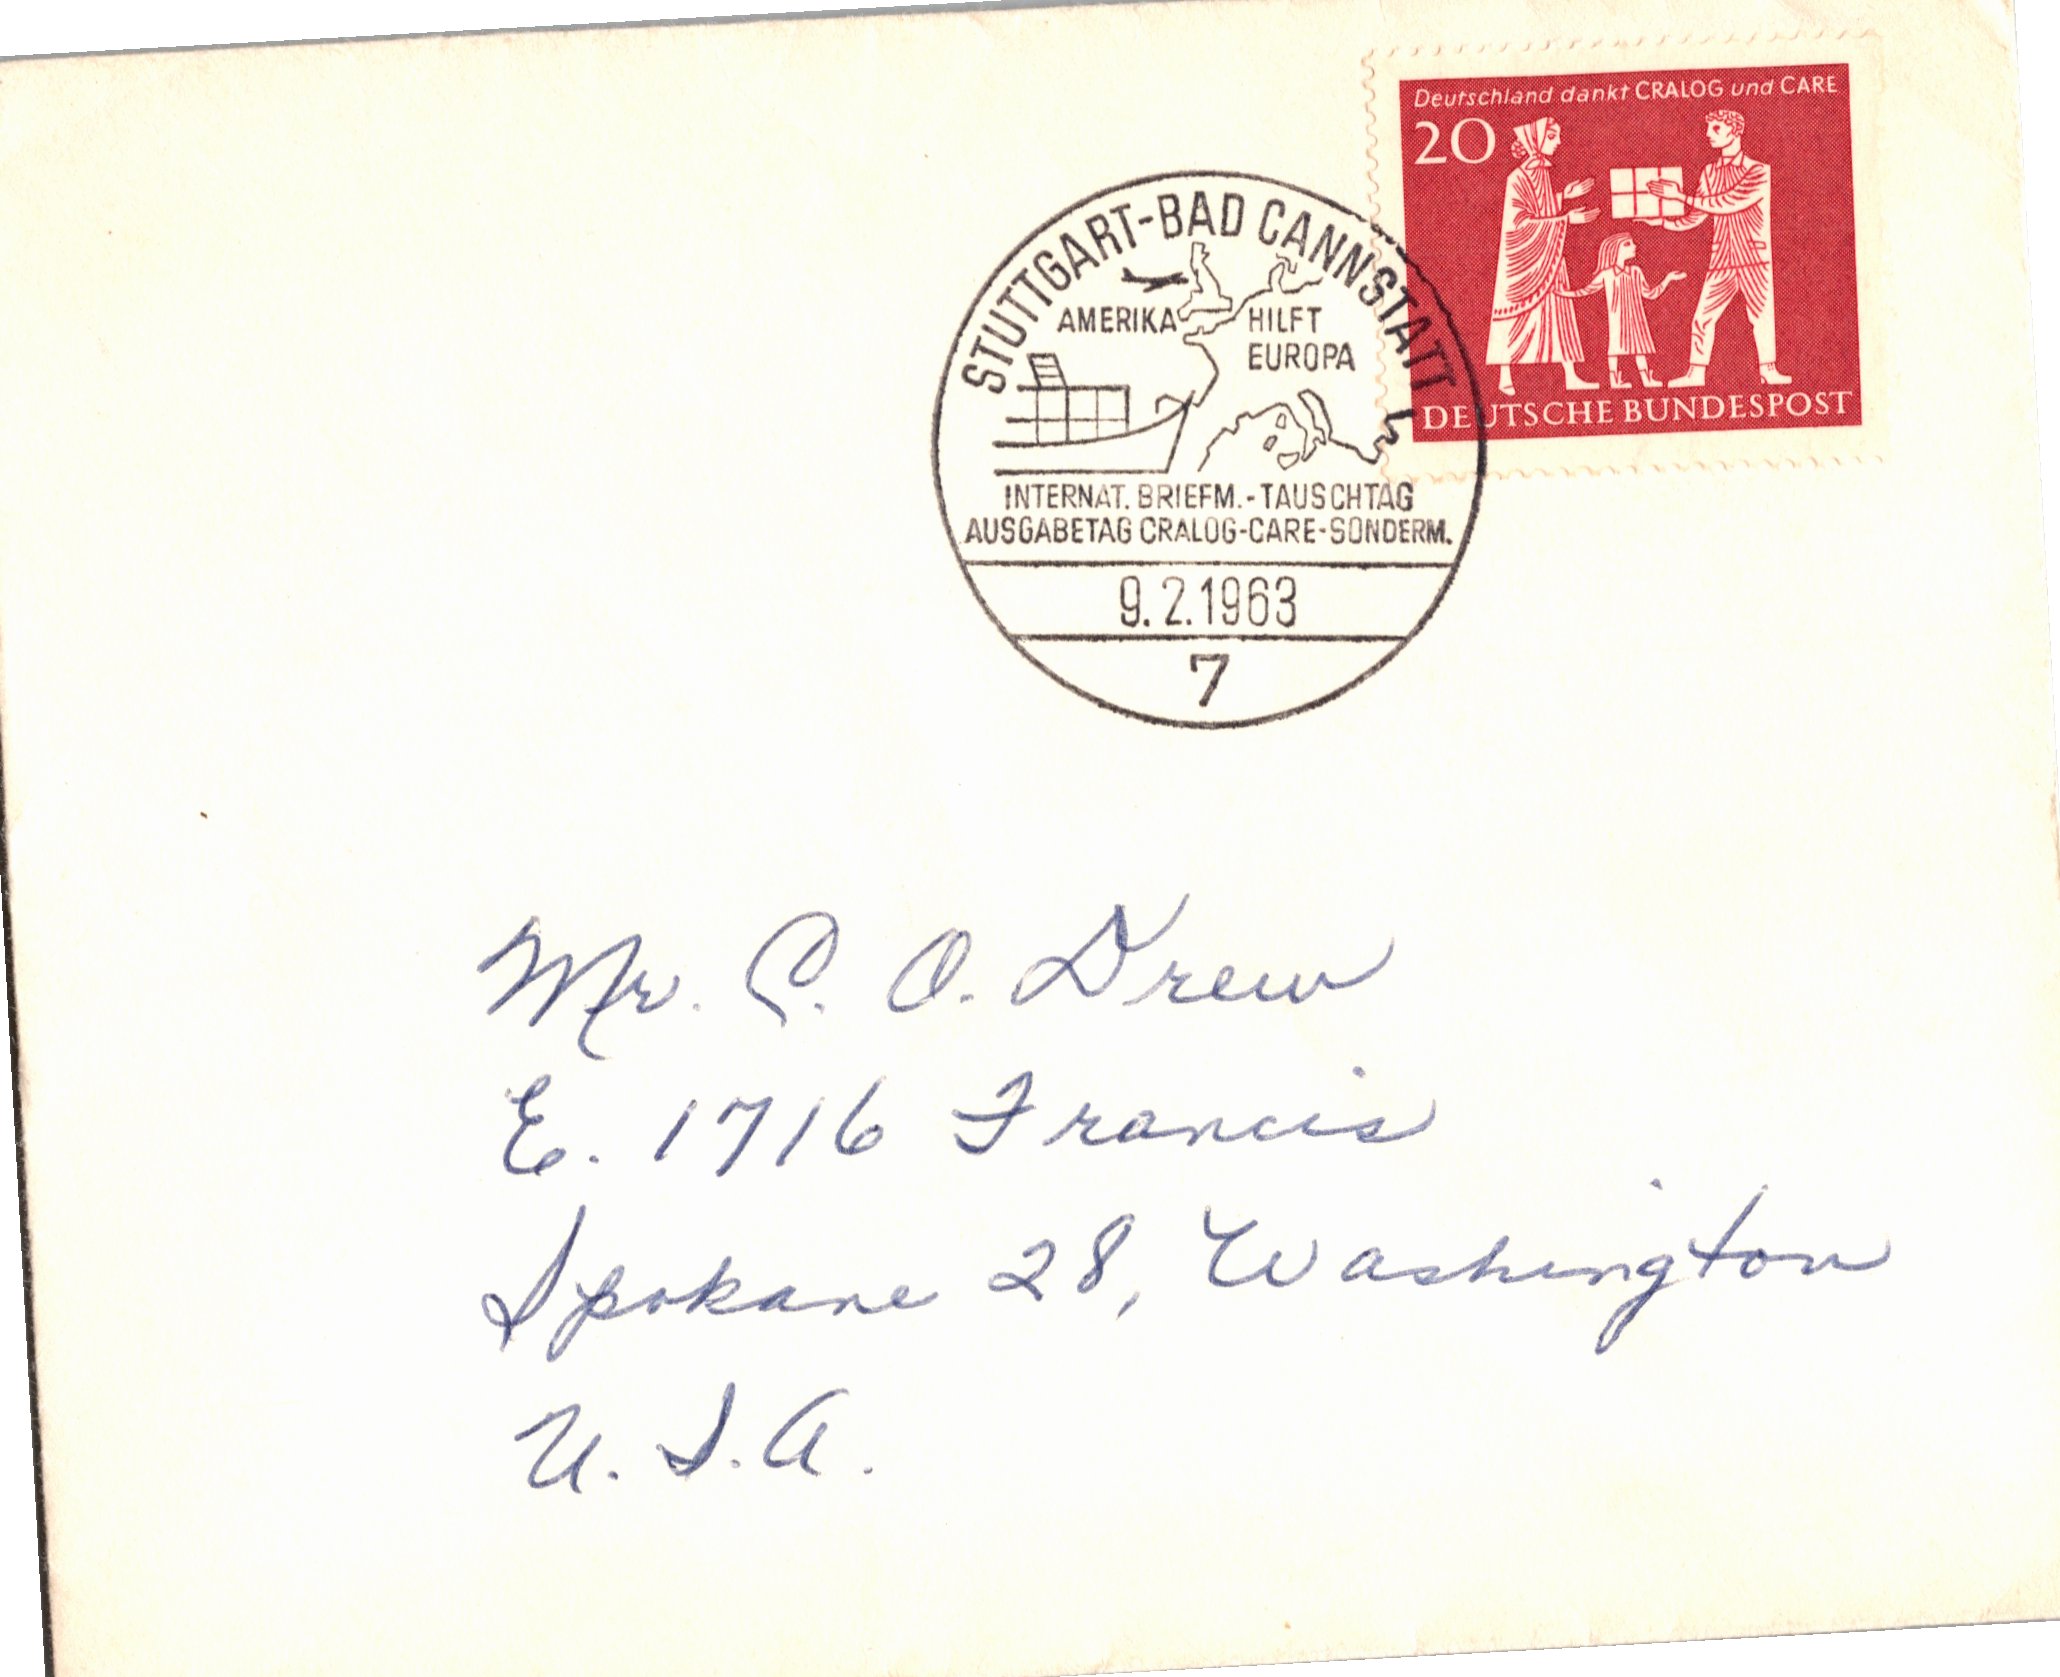 Deutschland dankt CRALOG und CARE
20
DEUTSCHE BUNDESPOST
STUTTGART-BAD CANNSTATT
AMERIKA HILFT
EUROPA
INTERNAT. BRIEFM.-TAUSCHTAG
AUSGABETAG CRALOG-CARE-SONDERM.
9.2.1963
7
Mr. C. O. Drew
E. 1716 Francis
Spokane 28, Washington
U.S.A.